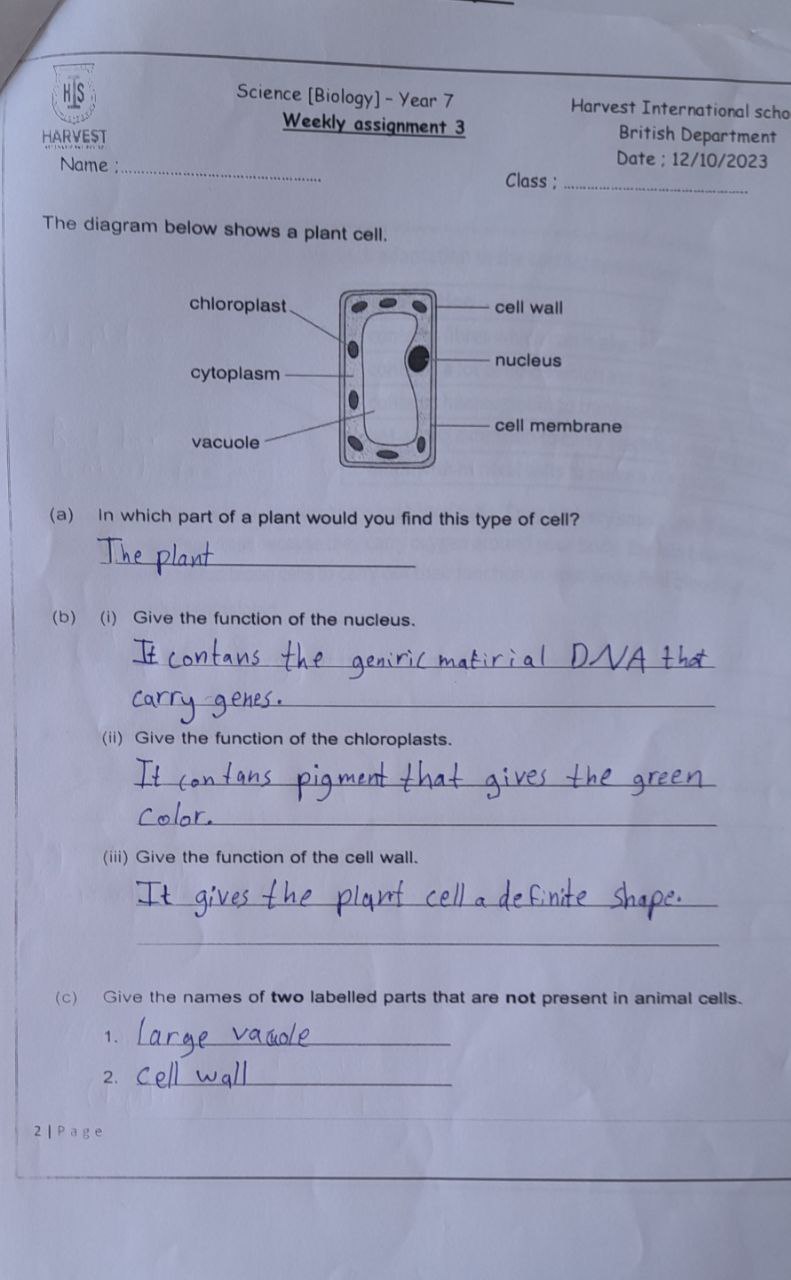 HIS
HARVEST
Science [Biology] - Year 7
Weekly assignment 3
Harvest International scho
British Department
Date : 12/10/2023
Name :
Class :
The diagram below shows a plant cell.
chloroplast
cell wall
nucleus
cytoplasm
cell membrane
vacuole
(a) In which part of a plant would you find this type of cell?
The plant
(b) (i) Give the function of the nucleus.
It contans the geniric matirial DNA that
carry genes.
(ii) Give the function of the chloroplasts.
It contans pigment that gives the green
color.
(iii) Give the function of the cell wall.
It gives the plant cell a definite shape.
(c) Give the names of two labelled parts that are not present in animal cells.
1. large vacuole
2. cell wall
2 | Page